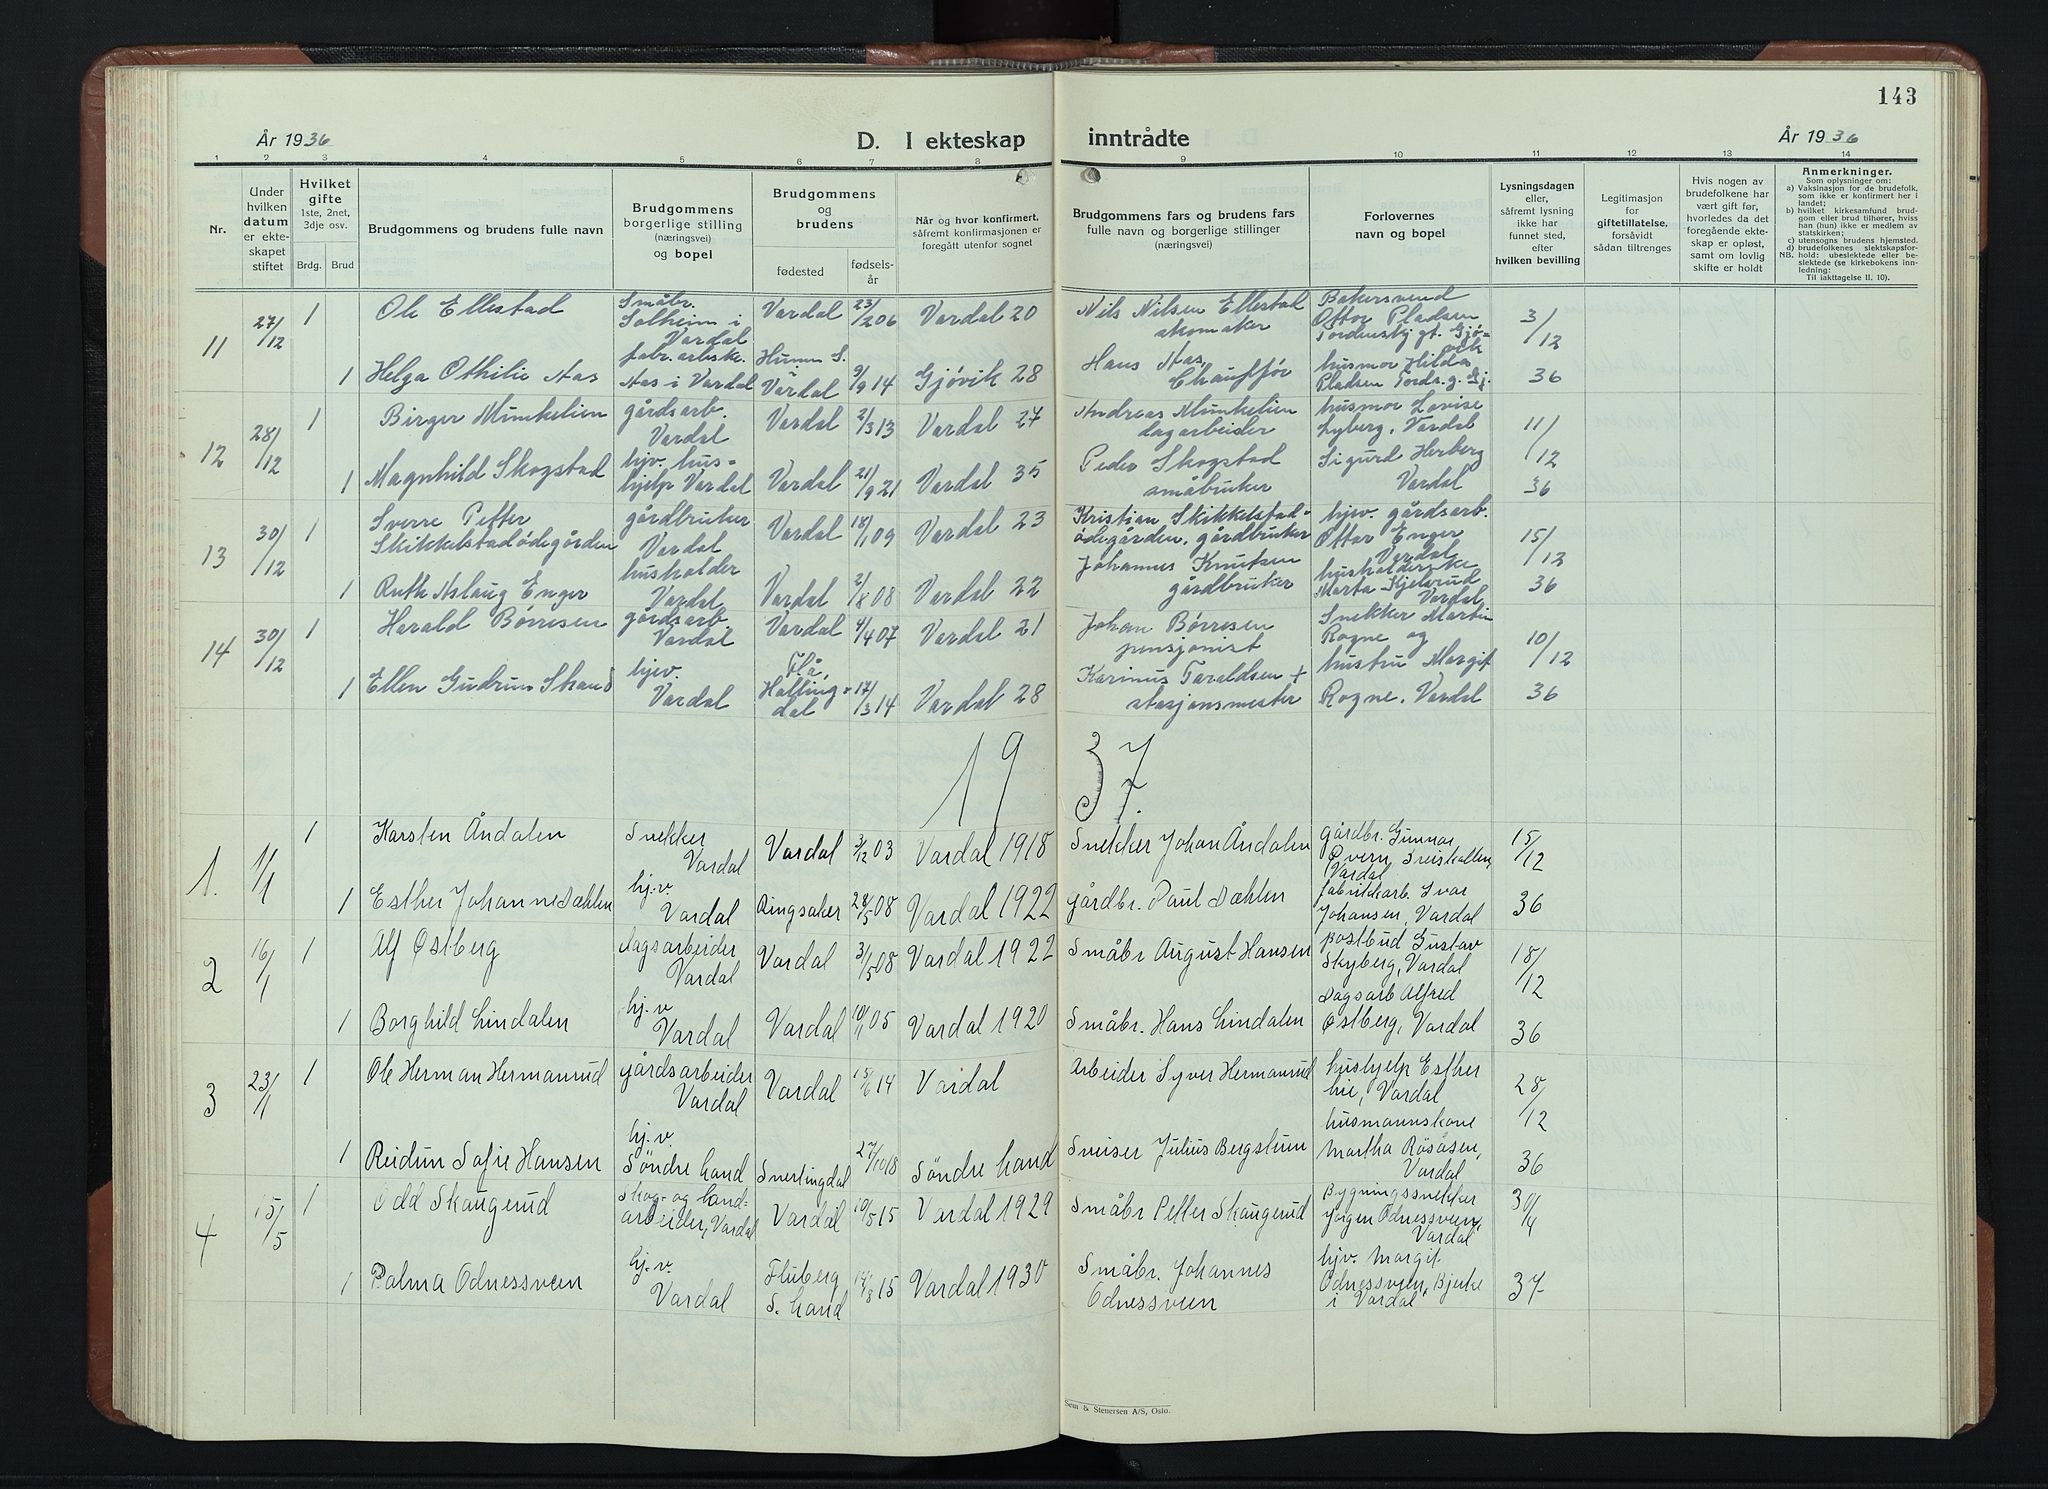 143
År 1936
D. I ekteskap inntrådte
År 1936
1 2 3 4 5 6 7 8 9 10 11 12 13 14
Nr.
Under hvilken datum er ekteskapet stiftet
Hvilket gifte 1ste, 2net, 3dje osv.
Brdg. Brud
Brudgommens og brudens fulle navn
Brudgommens borgerlige stilling (næringsvei) og bopel
Brudgommens og brudens
fødested
fødselsår
Når og hvor konfirmert, såfremt konfirmasjonen er foregått utenfor sognet
Brudgommens fars og brudens fars fulle navn og borgerlige stillinger (næringsvei)
Forlovernes navn og bopel
Lysningsdagen eller, såfremt lysning ikke har funnet sted, efter hvilken bevilling
Legitimasjon for giftetillatelse, forsåvidt sådan tiltrenges
Hvis nogen av brudefolkene har vært gift før, hvorledes da det foregående ekteskap er opløst, samt om lovlig skifte er holdt
Anmerkninger.
Som oplysning om:
a) Vaksinasjon for de brudefolk, som ikke er konfirmert her i landet;
b) hvilket kirkesamfund brudgom eller brud tilhører, hviss han (hun) ikke er medlem av statskirken;
c) utensogns brudens hjemsted.
d) brudefolkenes slektskapsforhold: ubeslektede eller beslektede (se kirkebokens innledning:
NB.
Til iakttagelse II. 10).
11 27/12 1 Ole Ellestad Småbr. Solheim i Vardal Vardal 23/2 06 Vardal 20 Nils Nilsen Ellestad skomaker Bakersvend Ottor Pladsen Tordenskj gt. Gjøvik 3/12 36
1 Helga Othilie Aas fabr. arbeiske. Aas i Vardal Hunn S. Vardal 9/9 14 Gjøvik 28 Hans Aas, Chauffør husmor Hilda Pladsen Tords. g. Gj.
12 28/12 1 Birger Munkelien gårdsarb. Vardal Vardal 2/3 13 Vardal 27 Andreas Munkelien dagarbeider husmor Lovise Lyberg, Vardal 11/12 36
1 Magnhild Skogstad hjv. hushjelp Vardal Vardal 21/9 21 Vardal 35 Peder Skogstad småbruker Sigurd Herberg Vardal
13 30/12 1 Sverre Petter Skikkelstadødegården gårdbruker Vardal Vardal 18/1 09 Vardal 23 Kristian Skikkelstadødegården, gårdbruker hjv. gårdsarb. Ottar Enger Vardal 15/12 36
1 Ruth Aslaug Enger husholder Vardal Vardal 2/8 08 Vardal 22 Johannes Knutsen gårdbruker husholderske Marta Kjelsrud Vardal
14 30/12 1 Harald Børresen gårdsarb. Vardal Vardal 4/4 07 Vardal 21 Johan Børresen pensjonist Snekker Martin Rogne og 10/12 36
1 Ellen Gudrun Skand hjv. Vardal Flå, Hallingdal 17/3 14 Vardal 28 Karinus Taraldsen + stasjonsmester hustru Margit Rogne, Vardal
1937.
1. 1/1 1 Karsten Åndalen Snekker Vardal Vardal 3/12 03 Vardal 1918 Snekker Johan Åndalen gårdbr. Gunnar Vardal 15/12 36
1 Esther Johanne Dæhlen hj.v. Vardal Ringsaker 28/5 08 Vardal 1922 gårdbr. Paul Dæhlen fabrikkarb. Ivar Johansen, Vardal
2 16/1 1 Alf Østberg dagsarbeider Vardal Vardal 3/5 08 Vardal 1922 Småbr August Hansen postbud Gustav Skyberg, Vardal 18/12 36
1 Borghild Lindalen hj.v. Vardal Vardal 10/1 05 Vardal 1920 Småbr. Hans Lindalen Dagsarb Alfred Østberg, Vardal
3 23/1 1 Ole Herman Hermanrud gårdsarbeider Vardal Vardal 15/6 14 Vardal Arbeider Syver Hermanrud hushjelp Esther Lie, Vardal 28/12 36
1 Reidun Sofie Hansen hj.v. Søndre Land Snertingdal 27/10 18 Søndre Land Sveiser Julius Bergstuen husmannskone Martha Røsåsen, Vardal
4 15/5 1 Odd Skaugerud Skog- og landarbeider, Vardal Vardal 10/5 15 Vardal 1929 Småbr Petter Skaugerud Bygningssnekker Jørgen Odnessveen, Vardal 30/4 37
1 Palma Odnessveen hj.v. Vardal Fluberg S. Land 14/8 15 Vardal 1930 Småbr. Johannes Odnessveen hjv. Margit Odnessveen, Bjerke i Vardal
Sem & Stenersen A/S, Oslo.